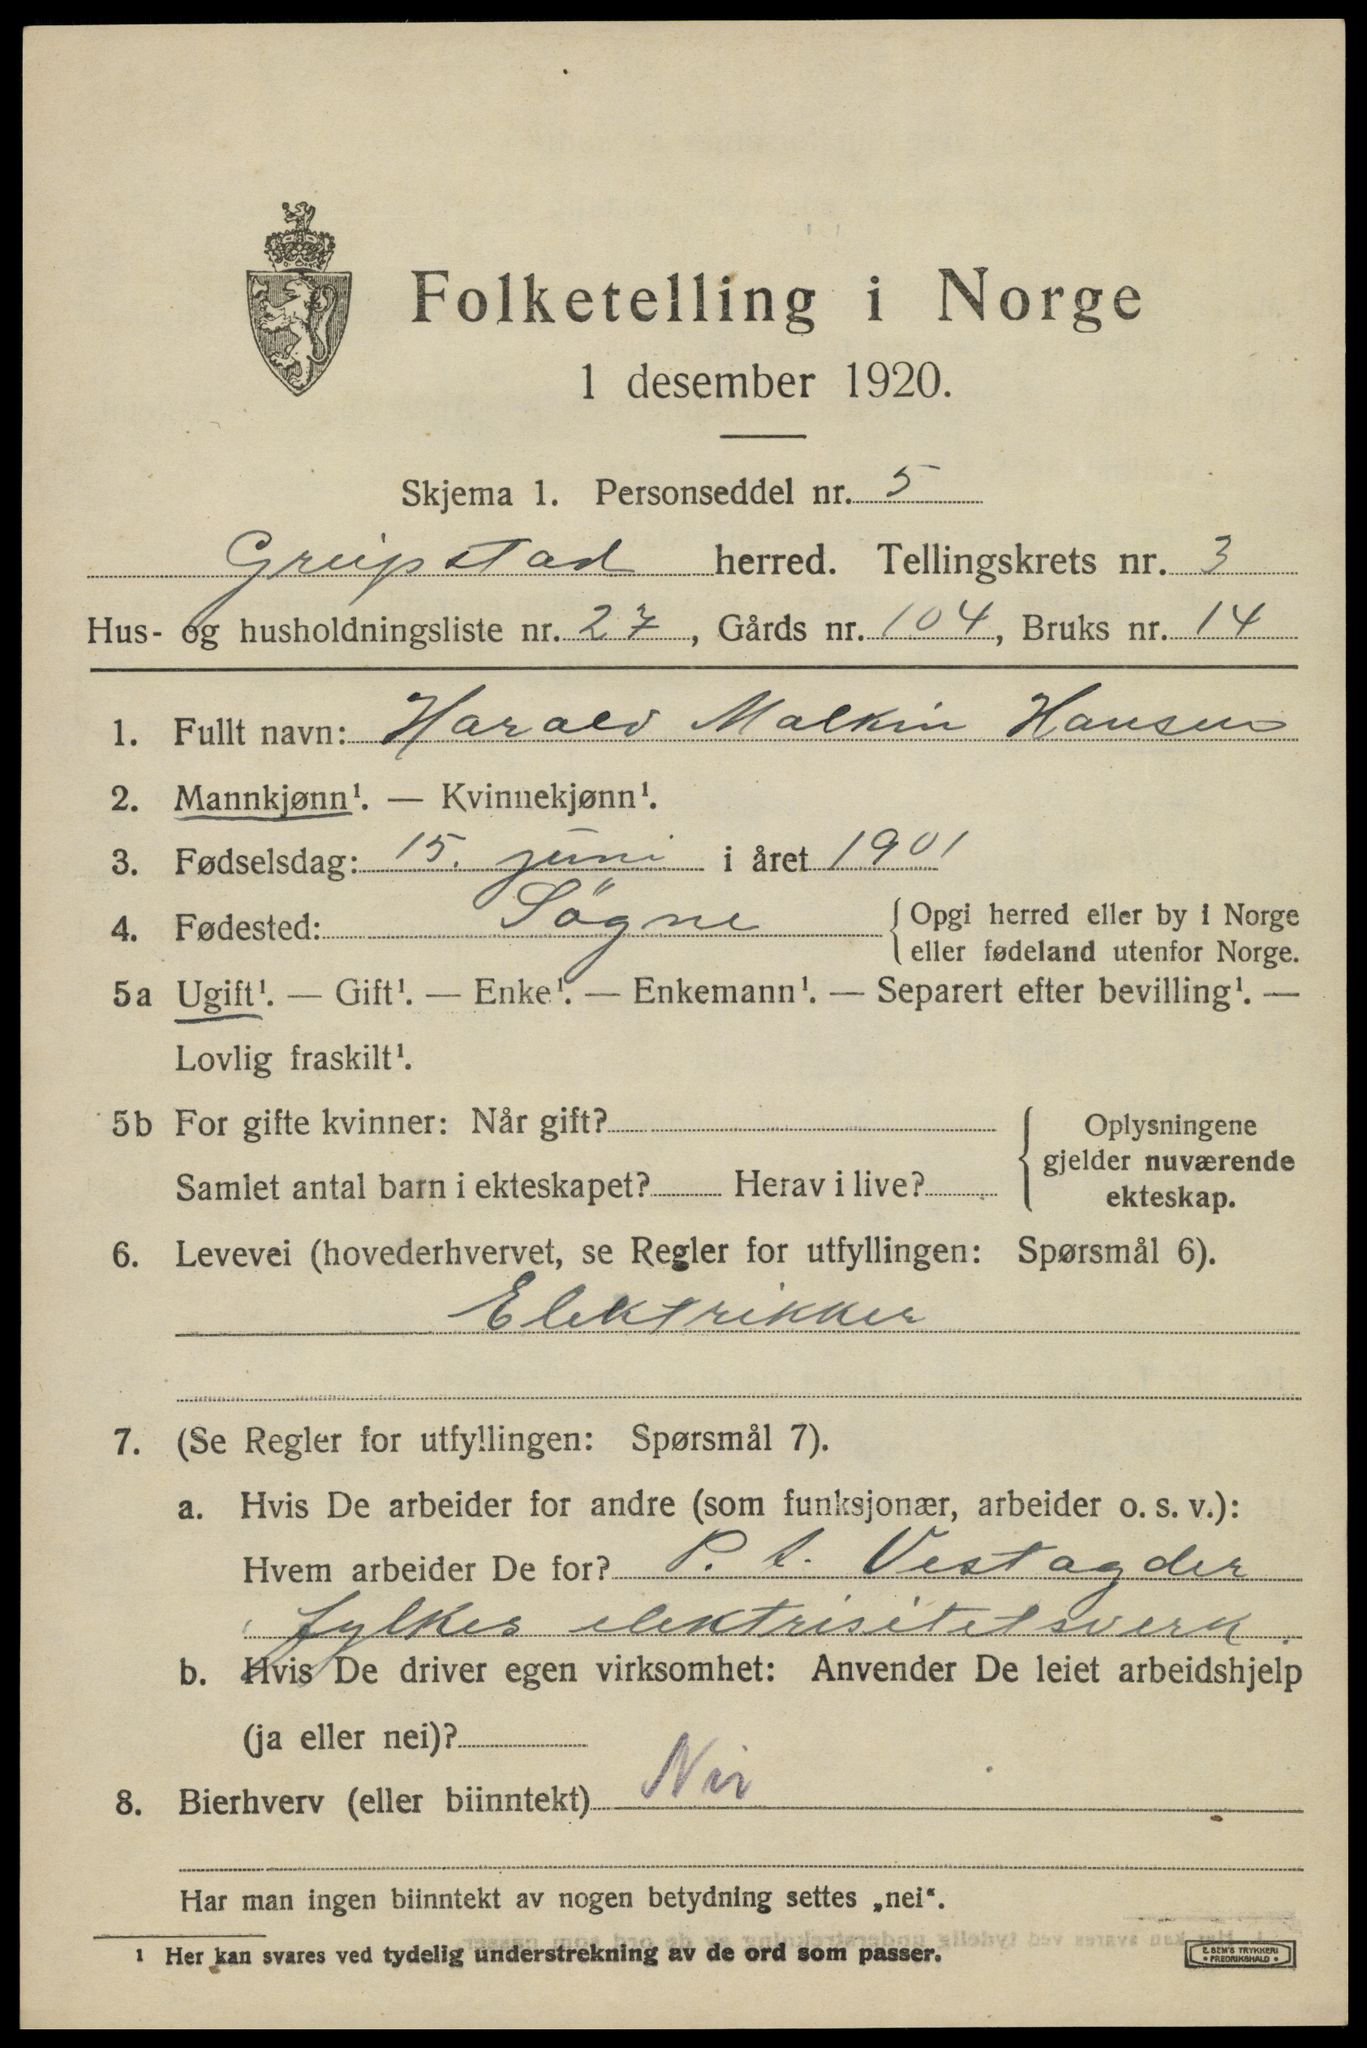 Folketelling i Norge
1 desember 1920.
Skjema 1. Personseddel nr. 5
Greipstad herred. Tellingskrets nr. 3
Hus- og husholdningsliste nr. 27, Gårds nr. 104, Bruks nr. 14
1. Fullt navn: Harald Malkin Hansen
2. Mannkjønn¹. — Kvinnekjønn¹.
3. Fødselsdag: 15. juni i året 1901
4. Fødested: Søgne { Opgi herred eller by i Norge
eller fødeland utenfor Norge.
5a Ugift¹. — Gift¹. — Enke¹. — Enkemann¹. — Separert efter bevilling¹. —
Lovlig fraskilt¹.
5b For gifte kvinner: Når gift?
Samlet antal barn i ekteskapet? Herav i live?
Oplysningene
gjelder nuværende
ekteskap.
6. Levevei (hovederhvervet, se Regler for utfyllingen: Spørsmål 6).
Elektrikker
7. (Se Regler for utfyllingen: Spørsmål 7).
a. Hvis De arbeider for andre (som funksjonær, arbeider o. s. v.):
Hvem arbeider De for? P. t. Vestagder
fylkes elektrisitetsverk.
b. Hvis De driver egen virksomhet: Anvender De leiet arbeidshjelp
(ja eller nei)?
8. Bierhverv (eller biinntekt) Nei
Har man ingen biinntekt av nogen betydning settes „nei“.
¹ Her kan svares ved tydelig understrekning av de ord som passer.
E. SEM'S TRYKKERI
• FREDRIKSHALD •